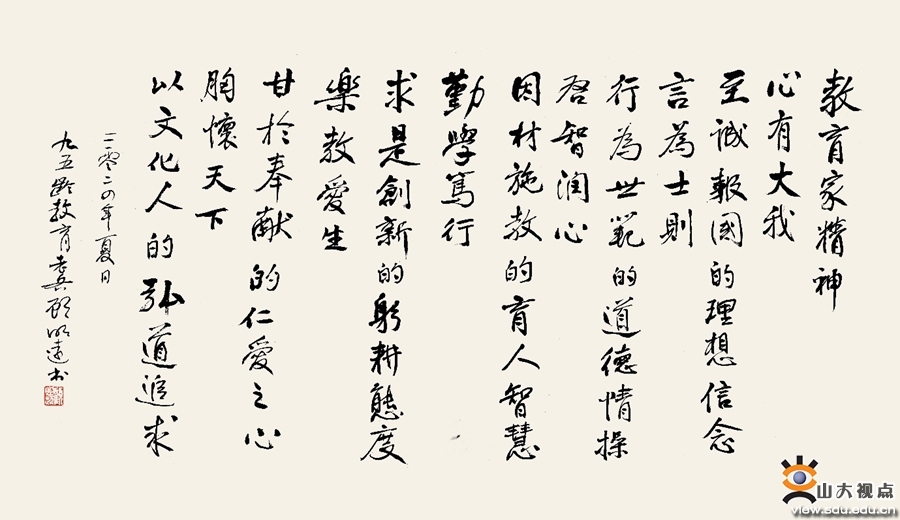 教育家精神
心有大我
至诚報國的理想信念
言為士則
行為世範的道德情操
启智润心
因材施教的育人智慧
勤學篤行
求是創新的躬耕態度
樂教愛生
甘於奉献的仁愛之心
胸懷天下
以文化人的弘道追求
二零二四年夏日
九五龄教育老兵顾明远书
山大视点
view.sdu.edu.cn